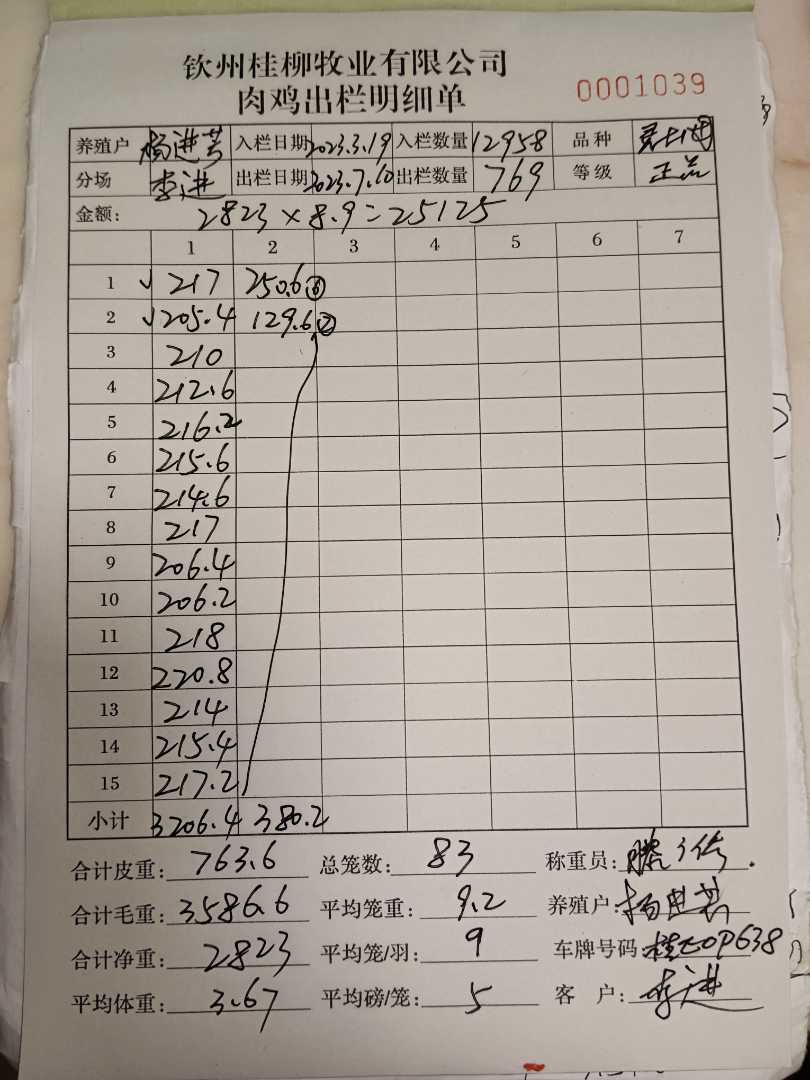 钦州桂柳牧业有限公司
肉鸡出栏明细单 0001039
养殖户 杨进芸 入栏日期 2023.3.19 入栏数量 12958 品种
分场 李进 出栏日期 2023.7.10 出栏数量 769 等级 正品
金额: 2823×8.9=25125
1 2 3 4 5 6 7
1 √ 217 250.6⑥
2 √ 205.4 129.6②
3 210
4 212.6
5 216.2
6 215.6
7 214.6
8 217
9 206.4
10 206.2
11 218
12 220.8
13 214
14 215.4
15 217.2
小计 3206.4 380.2
合计皮重: 763.6 总笼数: 83 称重员:
合计毛重: 3586.6 平均笼重: 9.2 养殖户: 杨进芸
合计净重: 2823 平均笼/羽: 9 车牌号码:
平均体重: 3.67 平均磅/笼: 5 客 户: 李进